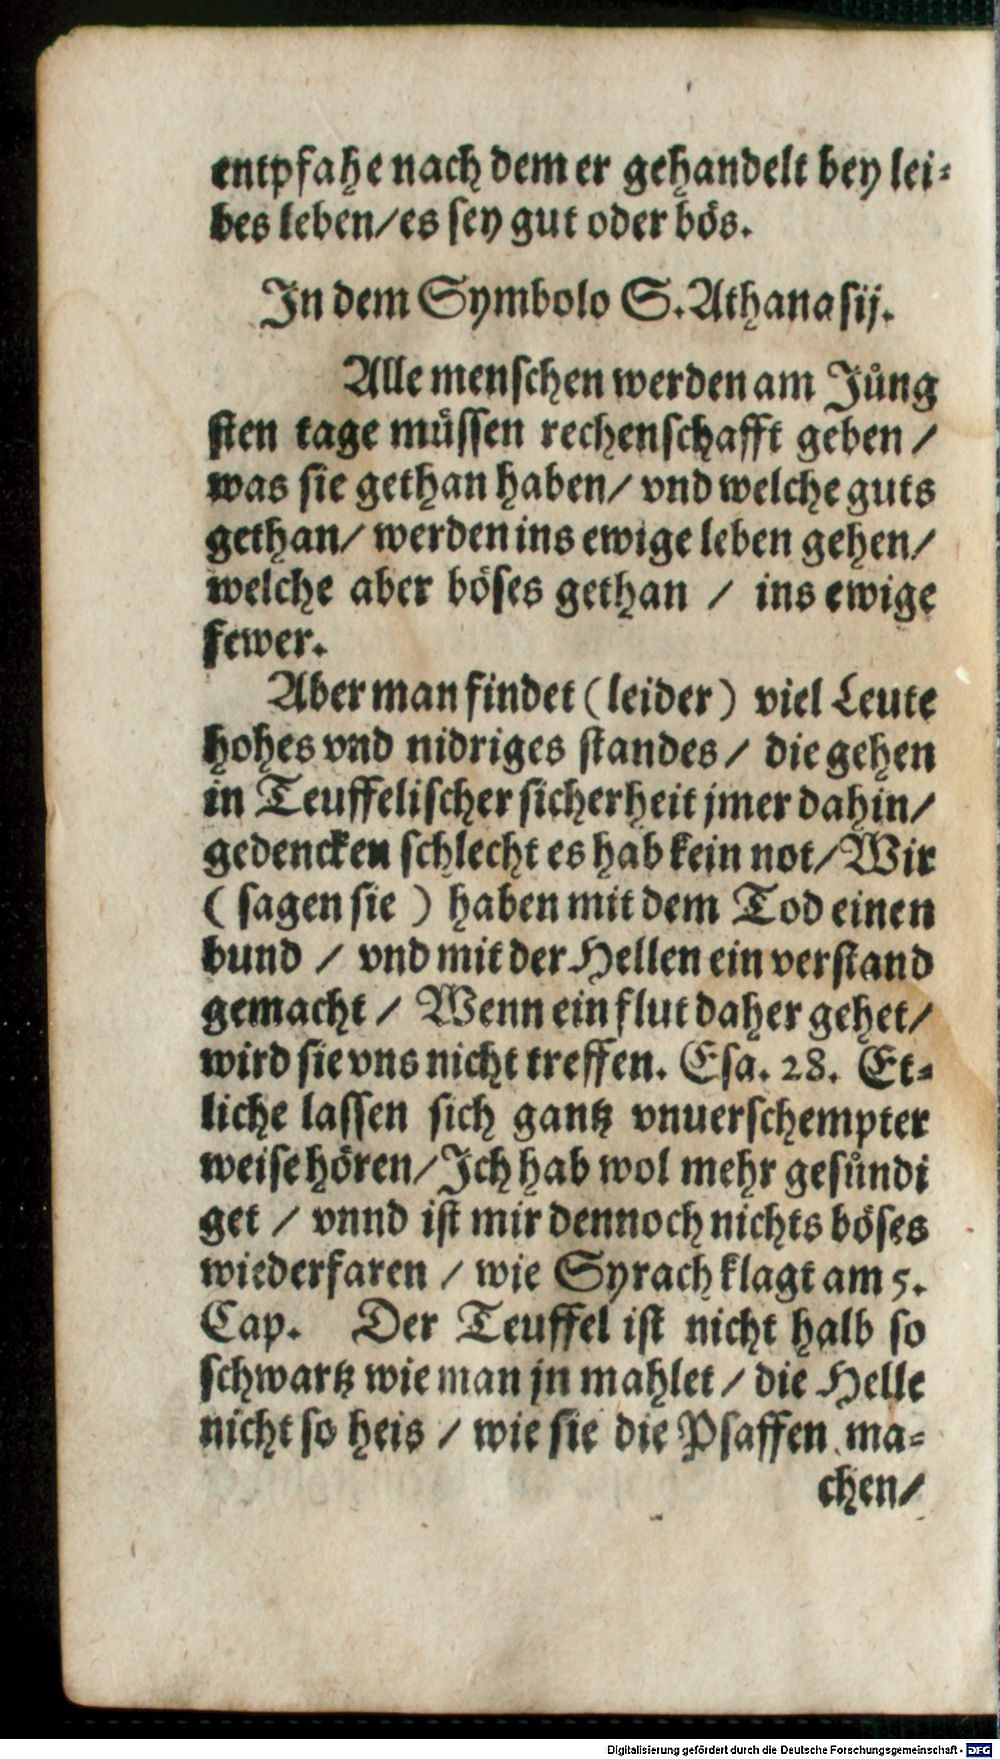 entpfahe nach dem er gehandelt bey lei⸗
bes leben/es sey gut oder bös.
In dem Symbolo S. Athanasij.
Alle menschen werden am Jůng
sten tage müssen rechenschafft geben /
was sie gethan haben/ vnd welche guts
gethan/ werden ins ewige leben gehen/
welche aber böses gethan / ins ewige
fewer.
Aber man findet (leider) viel Leute
hohes vnd nidriges standes/ die gehen
in Teuffelischer sicherheit jmer dahin/
gedencken schlecht es hab kein not/Wir
( sagen sie ) haben mit dem Tod einen
bund / vnd mit der Hellen ein verstand
gemacht / Wenn ein flut daher gehet/
wird sie vns nicht treffen. Esa. 28. Et⸗
liche lassen sich gantz vnuerschempter
weise hören/Ich hab wol mehr gesůndi
get / vnnd ist mir dennoch nichts böses
wiederfaren / wie Syrach klagt am 5.
Cap. Der Teuffel ist nicht halb so
schwartz wie man jn mahlet / die Helle
nicht so heis / wie sie die Psaffen ma⸗
chen/
Digitalisierung gefördert durch die Deutsche Forschungsgemeinschaft - DFG